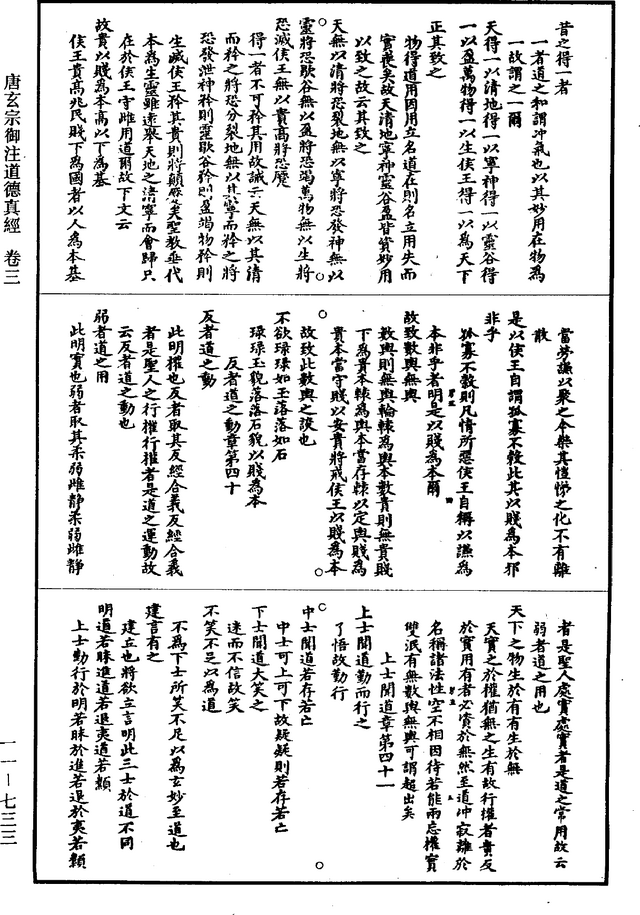 昔之得一者
一者道之和謂沖氣也以其妙用在物為
一故謂之一爾
天得一以清地得一以寧神得一以靈谷得
一以盈萬物得一以生侯王得一以為天下
正其致之
物得道用因用立名道在則名立用失而
實喪矣故天清地寧神靈谷盈皆資妙用
以致之故云其致之
天無以清將恐裂地無以寧將恐發神無以
靈將恐歇谷無以盈將恐竭萬物無以生將
恐滅侯王無以貴高將恐蹷
得一者不可矜其用故誡云天無以其清
而矜之將恐分裂地無以其寧而矜之將
恐發泄神矜則靈歇谷矜則盈竭物矜則
生滅侯王矜其貴則將顛蹷矣聖教垂代
本為生靈雖遠舉天地之清寧而會歸只
在於侯王守雌用道爾故下文云
故貴以賤為本高以下為基
侯王貴高兆民賤下為國者以人為本基
當勞謙以聚之令樂其愷悌之化不有離
散
是以侯王自謂孤寡不穀此其以賤為本邪
非乎
孤寡不穀則凡情所惡侯王自稱以謙為
本非乎者明是以賤為本爾
故致數輿無輿
數輿則無輿輪轅為輿本數貴則無貴賤
下為貴本轅為輿本當存轅以定輿賤為
貴本當守賤以安貴將戒侯王以賤為本
故致此數輿之談也
不欲琭琭如玉落落如石
琭琭玉貌落落石貌以賤為本
反者道之動章第四十
反者道之動
此明權也反者取其反經合義反經合義
者是聖人之行權行權者是道之運動故
云反者道之動也
弱者道之用
此明實也弱者取其柔弱雌靜柔弱雌靜
者是聖人處實處實者是道之常用故云
弱者道之用也
天下之物生於有有生於無
天實之於權猶無之生有故行權者貴反
於實用有者必資於無然至道沖寂離於
名稱諸法性空不相因待若能兩忘權實
雙泯有無數輿無輿可謂超出矣
上士聞道章第四十一
上士聞道勤而行之
了悟故勤行
中士聞道若存若亡
中士可上可下故疑疑則若存若亡
下士聞道大笑之
迷而不信故笑
不笑不足以為道
不為下士所笑不足以為玄妙至道也
建言有之
建立也將欲立言明此三士於道不同
明道若昧進道若退夷道若纇
上士勤行於明若昧於進若退於夷若纇
唐玄宗御注道德真經 卷三
一一—七三三